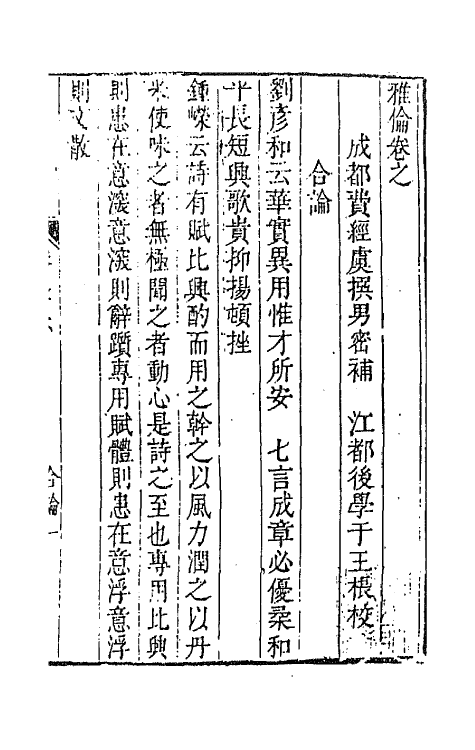 雅倫卷之
成都費經虞撰男密補　江都後學于王棖校
合論
劉彥和云華實異用惟才所安　七言成章必優柔和
平長短興歌貴抑揚頓挫
鍾嶸云詩有賦比興酌而用之幹之以風力潤之以丹
采使味之者無極聞之者動心是詩之至也專用比興
則患在意深意深則辭躓專用賦體則患在意浮意浮
則文散
合論　一